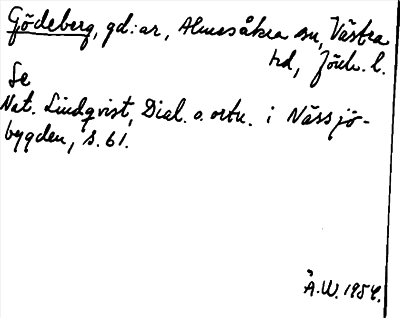 Gödeberg, gd:ar, Almesåkra sn, Västra
hd, Jönk. l.
Se
Nat. Lindqvist, Dial. o. ortn. i Nässjö-
bygden, s. 61.
Å.W. 1954.